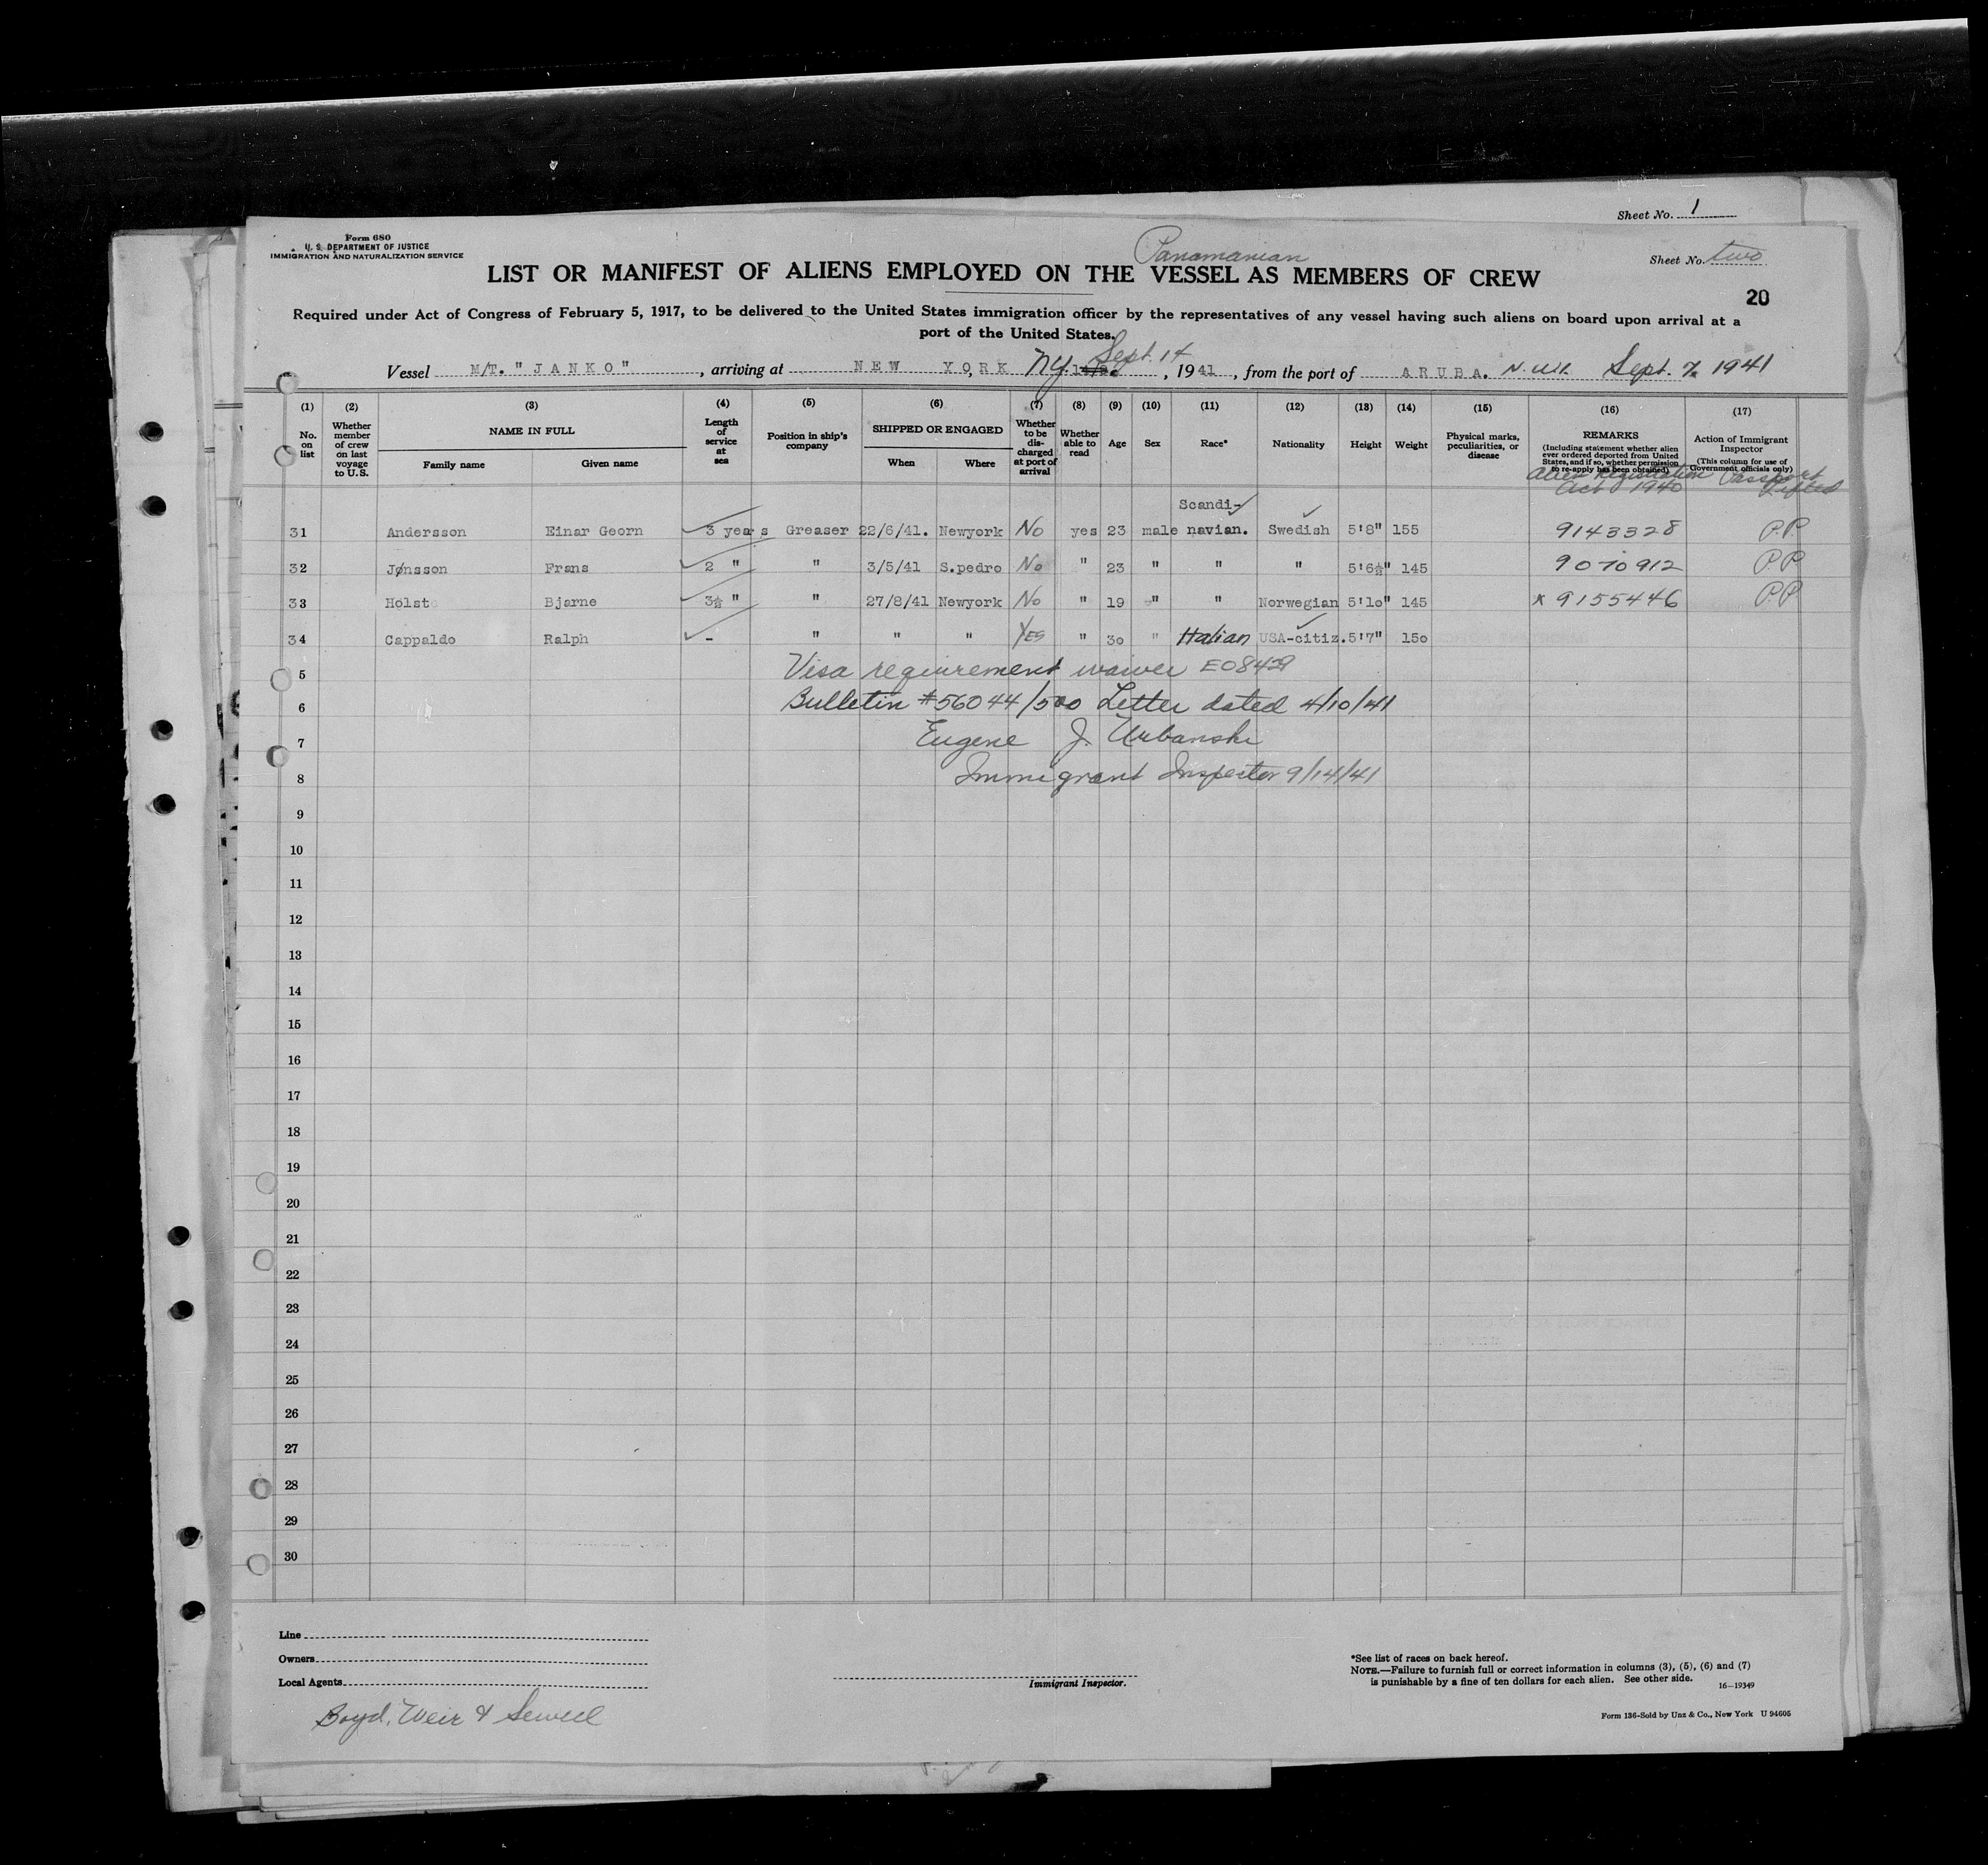 Sheet No. 1
Form 680
U. S. DEPARTMENT OF JUSTICE
IMMIGRATION AND NATURALIZATION SERVICE
Panamanian
Sheet No. two
LIST OR MANIFEST OF ALIENS EMPLOYED ON THE VESSEL AS MEMBERS OF CREW
20
Required under Act of Congress of February 5, 1917, to be delivered to the United States immigration officer by the representatives of any vessel having such aliens on board upon arrival at a
port of the United States.
Vessel M/T. "JANKO", arriving at NEW YORK, NY. Sept. 14, 1941, from the port of ARUBA. N.WI. Sept. 7. 1941
(1) (2) (3) (4) (5) (6) (7) (8) (9) (10) (11) (12) (13) (14) (15) (16) (17)
No. on list
Whether member of crew on last voyage to U.S.
NAME IN FULL
Family name
Given name
Length of service at sea
Position in ship's company
SHIPPED OR ENGAGED
When
Where
Whether to be discharged at port of arrival
Whether able to read
Age
Sex
Race*
Nationality
Height
Weight
Physical marks, peculiarities, or disease
REMARKS
(Including statement whether alien ever ordered deported from United States, and if so, whether permission to re-apply has been obtained)
Action of Immigrant Inspector
(This column for use of Government officials only)
Alien Registration Act 1940
Passport Lifted
31 Andersson Einar Georn 3 years Greaser 22/6/41. Newyork No yes 23 male Scandi-navian. Swedish 5'8" 155 9143328 P.P.
32 Jønsson Frans 2 " " 3/5/41 S.pedro No " 23 " " " 5'6½" 145 9070912 P.P.
33 Holst Bjarne 3½ " " 27/8/41 Newyork No " 19 " " Norwegian 5'10" 145 x 9155446 P.P.
34 Cappaldo Ralph - " " " YES " 30 " Italian USA-citiz. 5'7" 150
5 Visa requirement waiver EO8429
6 Bulletin #56044/500 Letter dated 4/10/41
7 Eugene J. Urbanski
8 Immigrant Inspector 9/14/41
9
10
11
12
13
14
15
16
17
18
19
20
21
22
23
24
25
26
27
28
29
30
Line
Owners
Local Agents
Boyd, Weir & Sewell
Immigrant Inspector.
*See list of races on back hereof.
NOTE.—Failure to furnish full or correct information in columns (3), (5), (6) and (7)
is punishable by a fine of ten dollars for each alien. See other side.
16—19349
Form 136-Sold by Unz & Co., New York U 94605